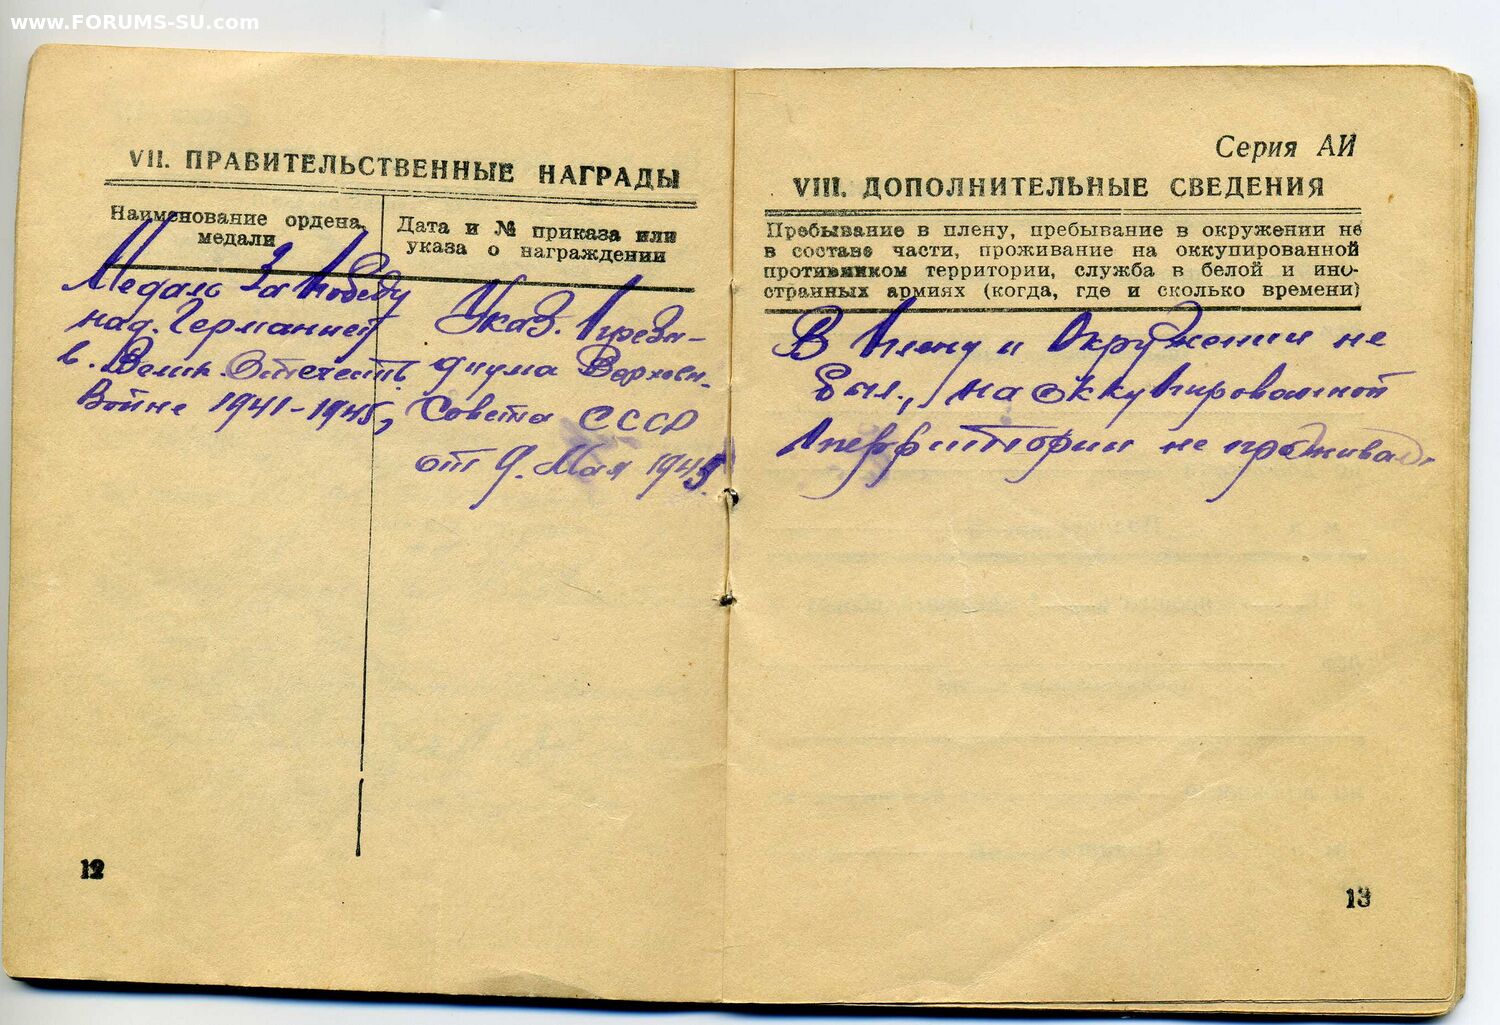 www.FORUMS-SU.com
VII. ПРАВИТЕЛЬСТВЕННЫЕ НАГРАДЫ
Наименование ордена,
медали
Дата и № приказа или
указа о награждении
Медаль За победу
над. Германией
в. Велик. Отечеств.
Войне 1941-1945,
Указ. Президи-
диума Верховн.
Совета СССР
от 9. Мая 1945.
12
Серия АИ
VIII. ДОПОЛНИТЕЛЬНЫЕ СВЕДЕНИЯ
Пребывание в плену, пребывание в окружении не
в составе части, проживание на оккупированной
противником территории, служба в белой и ино-
странных армиях (когда, где и сколько времени)
В плену и Окружении не
был., на оккупированной
территории не проживал.
13